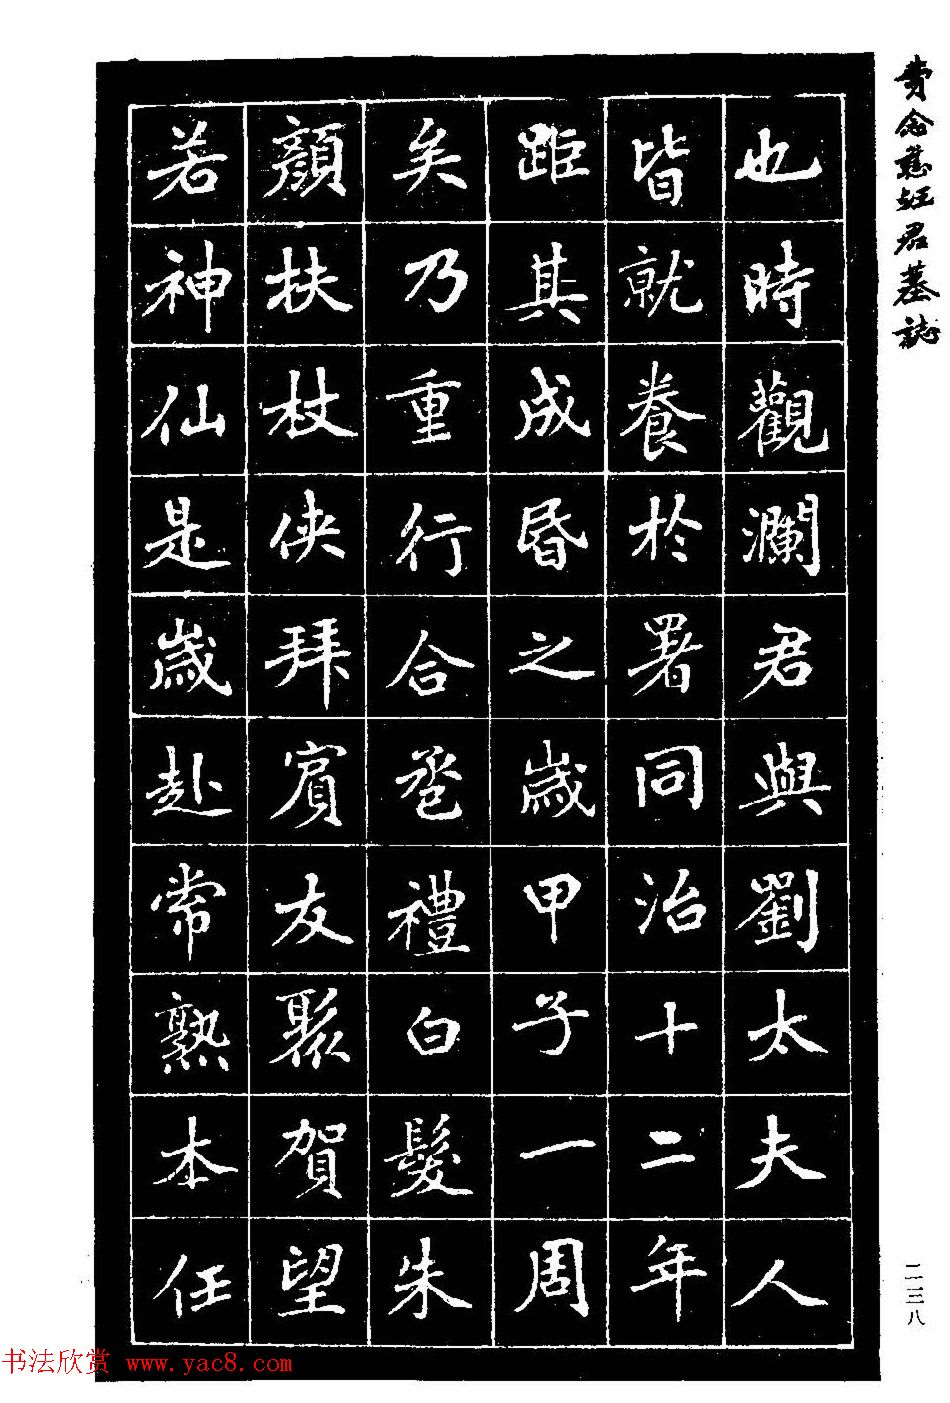 費念慈趙君墓誌
也時觀瀾君與劉太夫人
皆就養於署同治十二年
距其成昏之歲甲子一周
矣乃重行合卺禮白髮朱
顏扶杖俠拜賓友聚賀望
若神仙是歲赴常熟本任
二三八
书法欣赏 www.yac8.com